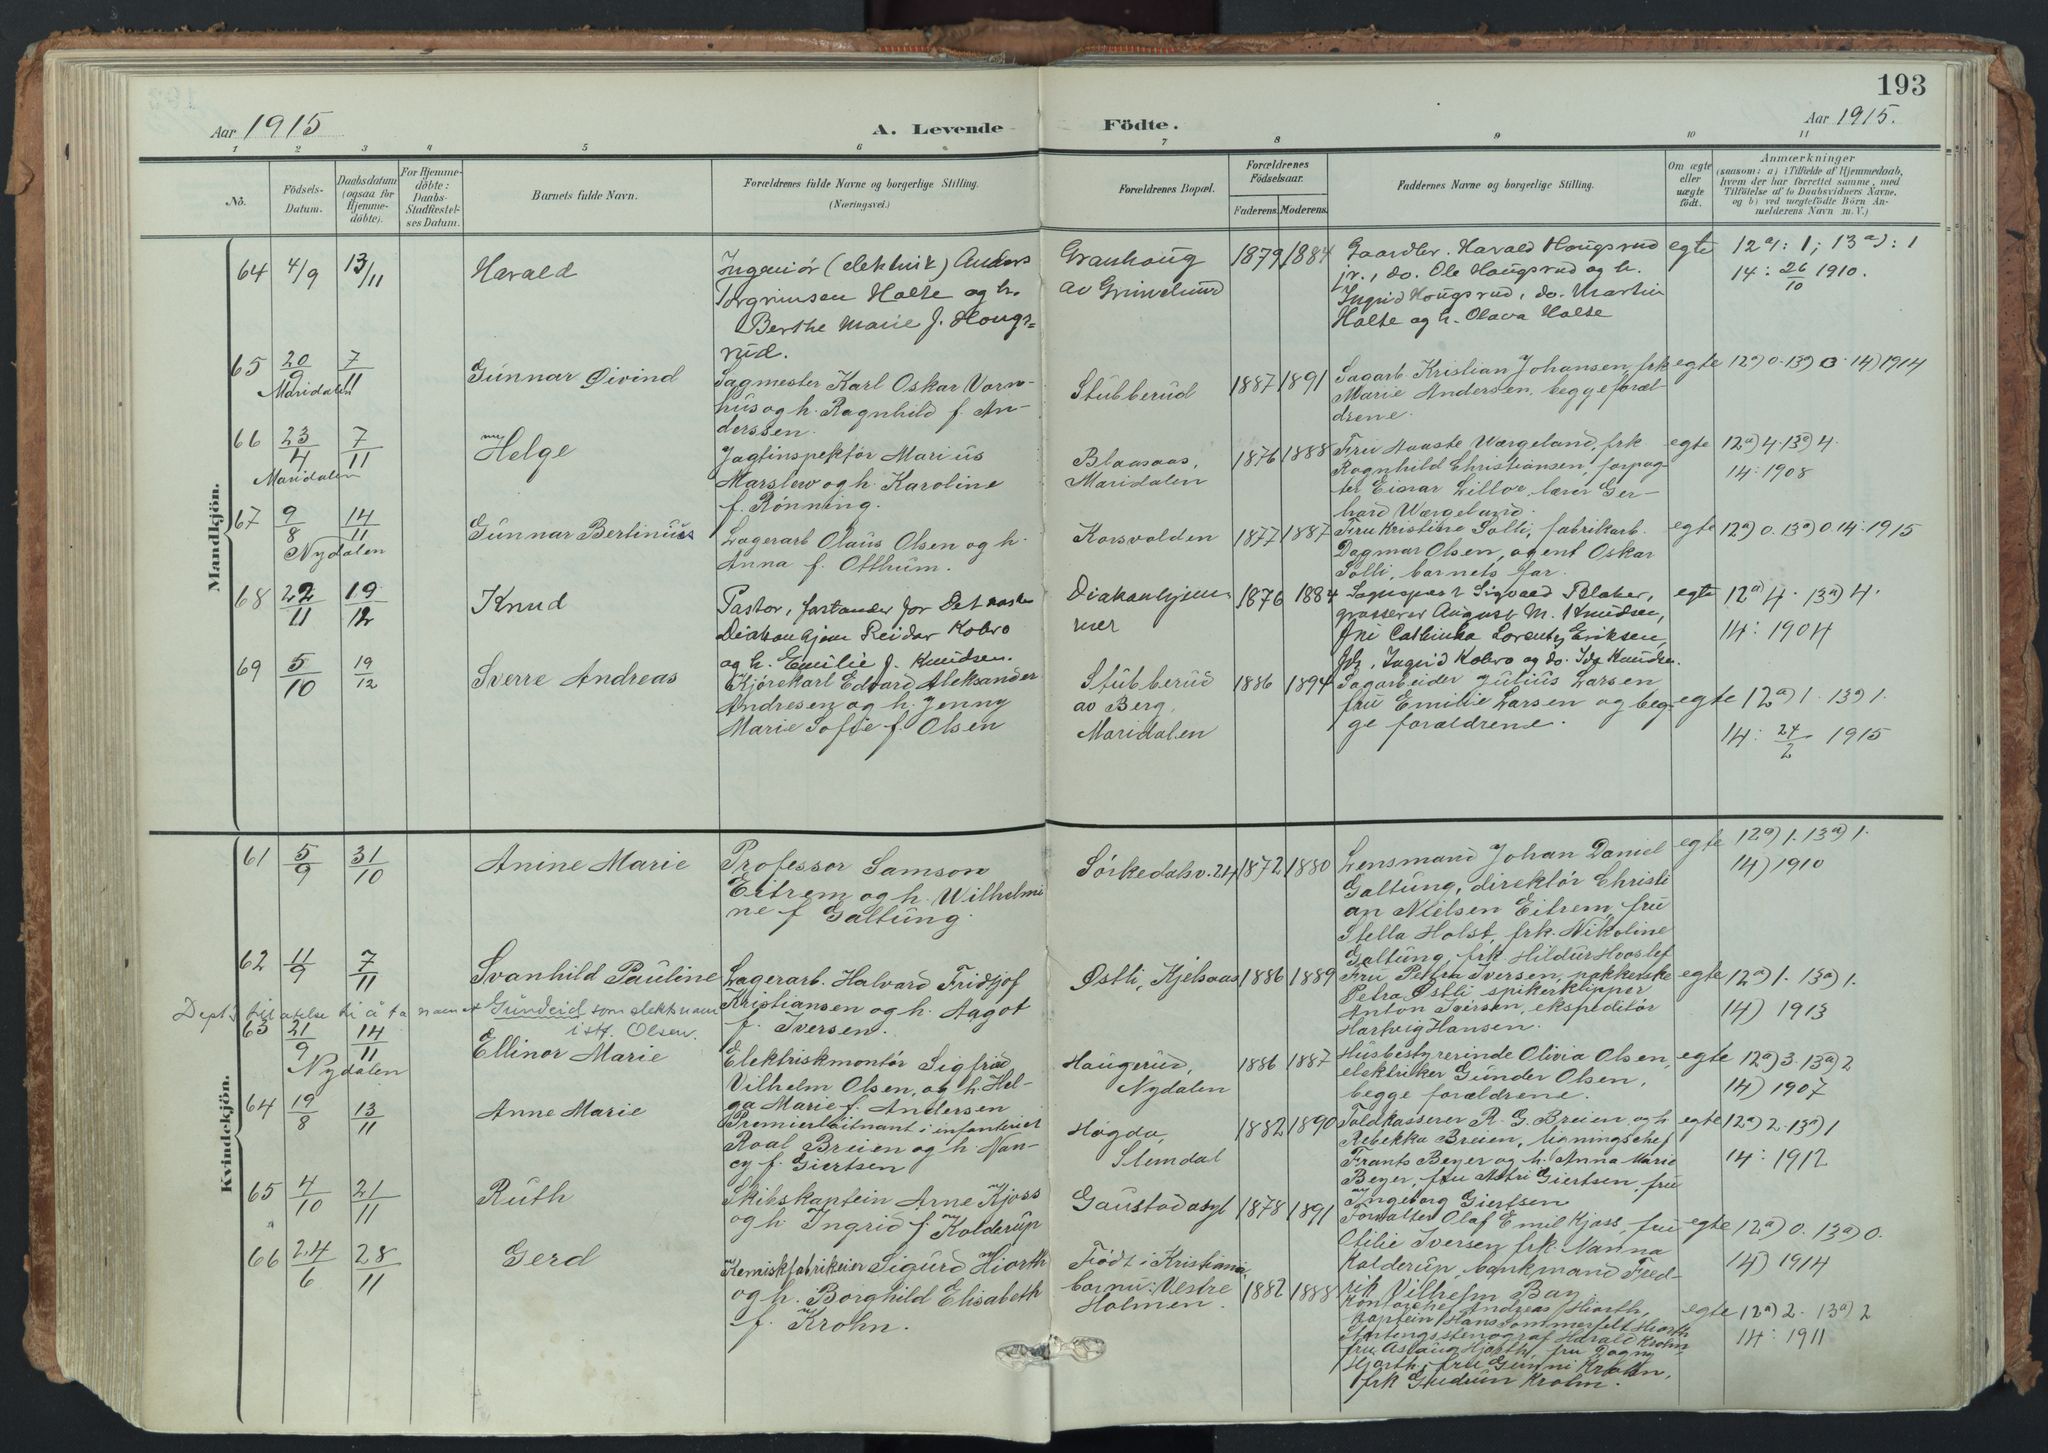 193
Aar 1915
A. Levende
Födte.
Aar 1915.
1 2 3 4 5 6 7 8 9 10 11
No.
Födsels-
Datum.
Daabsdatum
(ogsaa for
Hjemme-
döbte).
For Hjemme-
döbte:
Daabs-
Stadfæstel-
ses Datum.
Barnets fulde Navn.
Forældrenes fulde Navne og borgerlige Stilling.
(Næringsvei.)
Forældrenes Bopæl.
Forældrenes
Födselsaar.
Faderens. Moderens.
Faddernes Navne og borgerlige Stilling.
Om ægte
eller
uægte
födt.
Anmærkninger
(saasom: a) i Tilfælde af Hjemmedaab,
hvem der har forrettet samme, med
Tilföielse af to Daabsvidners Navne,
og b) ved uægtefödte Börn An-
melderens Navn m. V.)
Mandkjön.
64 4/9 13/11
Harald
Ingeniör (elektrik) Anders
Torgrimsen Holte og h.
Berthe Marie f. Hougs=
rud.
Granhoug
av Grinilund
1879 1884
Gaardbr. Harald Hougsrud
jr., do. Ole Hougsrud og h.
Ingrid Hougsrud, do. Martin
Holte og h. Olava Holte
egte
12a): 1; 13a): 1
14: 26/10 1910.
65 20/9 7/11
Maridalen
Gunnar Øivind
Sagmester Karl Oskar Vorn-
hus og h. Ragnhild f. An-
derssen.
Stubberud
1887 1891
Sagarb. Kristian Johansen, frk
Marie Andersen, begge foræl-
drene.
egte
12a) 0. 13a) 0. 14) 1914
66 23/4 7/11
Maridalen
Helge
Jagtinspektør Marius
Marslew og h. Karoline
f. Rønning.
Blaasaas,
Maridalen
1876 1888
Fru Aaste Wærgeland, frk
Ragnhild Christiansen, forpag-
ter Einar Lilloe, lærer Ger-
hard Wærgeland.
egte
12a) 4. 13a) 4.
14: 1908
67 9/8 14/11
Nydalen
Gunnar Bertinius
Lagerarb Olaus Olsen og h.
Anna f. Otthum.
Korsvolden
1877 1887
Fru Kristine Solli, fabrikarb.
Dagmar Olsen, agent Oskar
Solli, barnets far.
egte
12a) 0. 13a) 0. 14: 1915
68 22/11 19/12
Knud
Pastor, forstander for Det norske
Diakonhjem Reidar Kobro
og h. Emilie f. Knudsen.
Diakonhjem-
met
1876 1884
Sogneprest Sigvald Ploker,
grosserer August M. Knudsen,
Fru Cathinka Lorentz Eriksen,
frk. Ingrid Kobro og do. Ida Knudsen.
egte
12a) 4. 13a) 4.
14: 1904
69 5/10 19/12
Sverre Andreas
Kjørekarl Edvard Aleksander
Andresen og h. Jenny
Marie Sofie f. Olsen
Stubberud
av Berg,
Maridalen
1886 1894
Sagarbeider Julius Larsen
fru Emilie Larsen og beg-
ge forældrene.
egte
12a) 1. 13a) 1.
14: 24/2 1915
Kvindekjön.
61 5/9 31/10
Anine Marie
Professor Samson
Eitrem og h. Wilhelmi
ne f Galtung.
Sørkedalsv. 24
1872 1880
Lensmand Johan Daniel
Galtung, direktör Christi
an Nielsen Eitrem, fru
Stella Holst, frk. Nikoline
Galtung, frk. Hildur Hooslef
egte
12a) 1. 13a) 1.
14) 1910
62 11/9 7/11
Svanhild Pauline
Lagerarb. Halvard Fridtjof
Kristiansen og h. Aagot
f. Iversen.
Østli, Kjelsaas
1886 1889
Fru Petra Iversen, pakkerske
Petra Østli, spikerklipper
Anton Iversen, ekspeditör
Hartvig Hansen.
egte
12a) 1. 13a) 1.
14) 1913
Dept.s tillatelse til å ta navnet Gundeid som slektsnavn
istf. Olsen.
63 21/9 14/11
Nydalen
Ellinor Marie
Elektriskmontör Sigfrid
Vilhelm Olsen, og h. Hel-
ga Marie f. Andersen
Haugerud,
Nydalen
1886 1887
Husbestyrerinde Olivia Olsen,
elektriker Gunder Olsen,
begge forældrene.
egte
12a) 3. 13a) 2
14) 1907
64 19/8 13/11
Anne Marie
Premierløitnant i infanteriet
Roal Breien og h. Nan-
cy f. Giertsen
Høgda,
Slemdal
1882 1890
Toldkasserer R. G. Breien og h
Rebekka Breien, ligningschef
Frants Beyer og h. Anna Marie
Beyer, fru Astri Giertsen, fru
Ingeborg Giertsen
egte
12a) 2. 13a) 1
14: 1912
65 4/10 21/11
Ruth
Skibskaptein Arne Kjoss
og h. Ingrid f. Kolderup
Gaustad asyl
1878 1891
Forvalter Olaf Emil Kjoss, fru
Otilie Iversen frk. Nanna
Kolderup, bankmand Fred-
rik Vilhelm Bay
egte
12a) 0. 13a) 0.
14) 1914
66 24/6 28/11
Gerd
Kemisk fabrikeier Sigurd Hiorth
og h. Borghild Elisabeth
f. Krohn.
Født i Kristiania,
bor nu: Vestre
Holmen.
1882 1888
Kontorchef Andreas Hiorth,
kaptein Hans Sommerfelt Hiorth
Stortingsstenograf Harald Krohn
fru Aslaug Hiorth, fru Dagny
Hiorth, fru Gunni Krohn,
frk Gudrun Krohn.
egte
12a) 2. 13a) 2
14: 1911